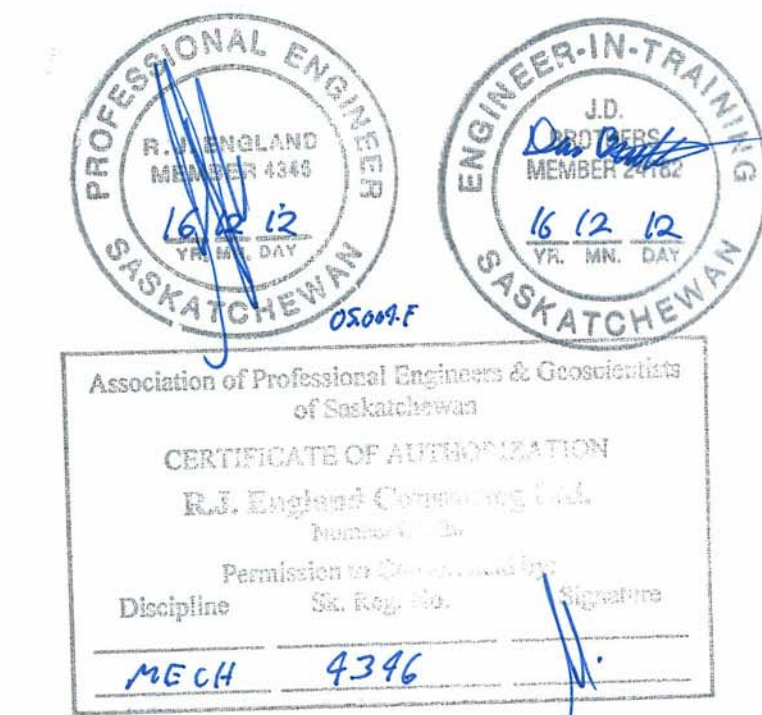 PROFESSIONAL ENGINEER
R.J. ENGLAND
MEMBER 4345
16 12 12
YR. MN. DAY
SASKATCHEWAN
05.009.F
ENGINEER-IN-TRAINING
J.D.
BROTHERS
MEMBER 24182
16 12 12
YR. MN. DAY
SASKATCHEWAN
Association of Professional Engineers & Geoscientists
of Saskatchewan
CERTIFICATE OF AUTHORIZATION
R.J. England Consulting Ltd.
Number
Permission to Consult held by:
Discipline Sk. Reg. No. Signature
MECH 4346